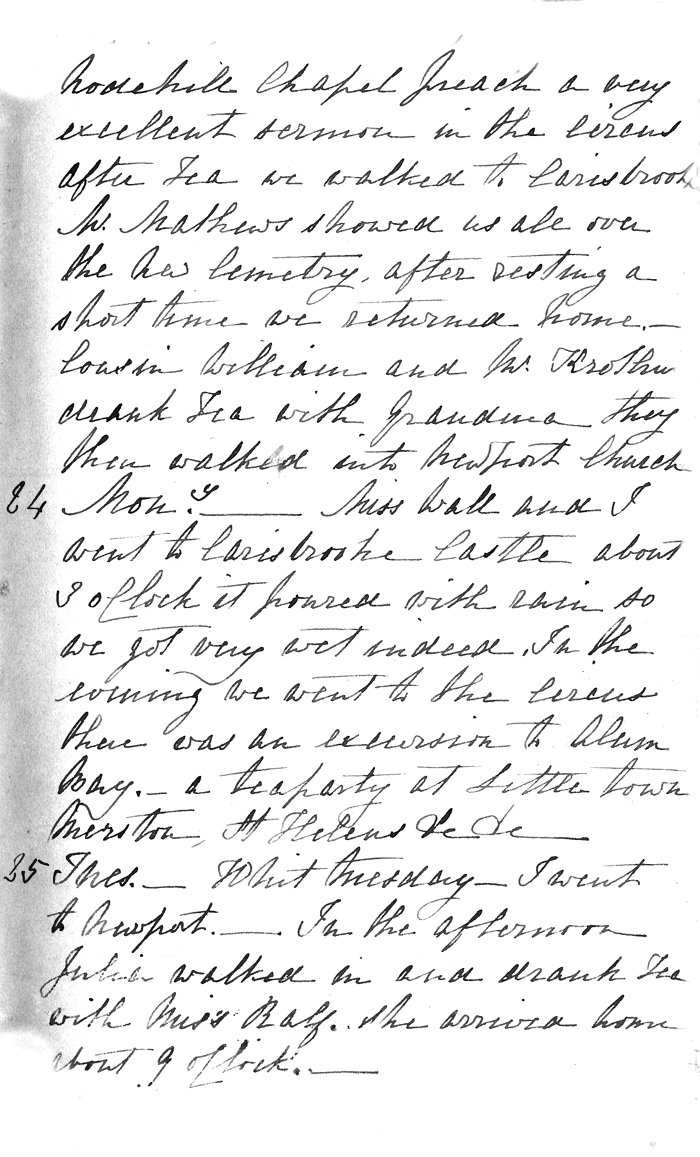 Nodehill Chapel preach a very
excellent sermon in the Circus
after Tea we walked to Carisbrook
Mr. Mathews showed us all over
the New Cemetry. after resting a
short time we returned home.—
Cousin William and Mr.
drank Tea with Grandma they
then walked into Newport Church
24 Mon.y—— Miss Wall and I
went to Carisbrooke Castle about
3 oClock it poured with rain so
we got very wet indeed. In the
evening we went to the Circus
there was an excursion to Alum
Bay.— a teaparty at Little town
Merston, St Helens &c &c——
25 Tues.— Whit tuesday— I went
to Newport.——. In the afternoon
Julia walked in and drank Tea
with Miss Ralf. she arrived home
about 9 oClock.——